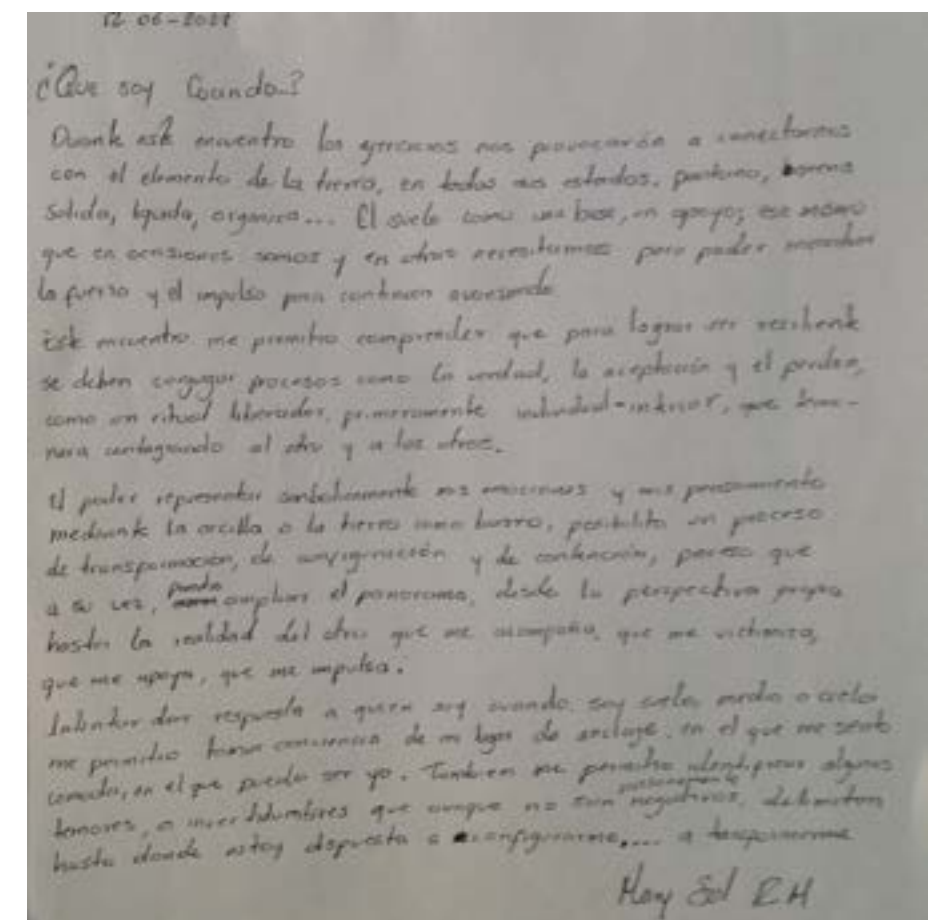 12-06-2021
¿Que soy Cuando..?
Durante este encuentro los ejercicios nos provocarón a conectarnos
con el elemento de la tierra, en todos sus estados, pantano,
Solida, liquida, organica... El suelo como una base, un apoyo; ese mismo
que en ocasiones somos y en otras necesitamos para poder
la fuerza y el impulso para continuar avanzando
Este encuentro me permitio comprender que para lograr ser resiliente
se deben conjugar procesos como la verdad, la aceptación y el perdon,
como un ritual liberador, primeramente individual-interior, que termi-
nara contagiando al otro y a los otros.
El poder representar simbolicamente mis emociones y mis pensamiento
mediante la arcilla o la tierra como barro, posibilita un proceso
de transformación, de configuración y de contención, proceso que
a su vez, puede ampliar el panorama, desde la perspectiva propia
hasta la realidad del otro que me acompaña, que me victimiza,
que me apoya, que me impulsa.
Intentar dar respuesta a quien soy cuando soy suelo, medio o cielo
me permitio tomar conciencia de mi lugar de anclaje, en el que me siento
comoda, en el que puedo ser yo. Tambien me permitio identificar algunos
temores, o incertidumbres que aunque no son negativos, delimitan
hasta donde estoy dispuesta a configurarme.... a transformarme
Mary Sol R.H